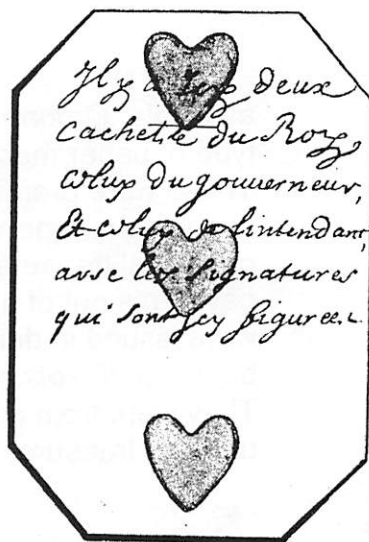 Il y a les deux
Cachette du Roy,
coluy du gouuerneur,
Et coluy de lintendant,
avec les signatures
qui sont Jcy figurees.